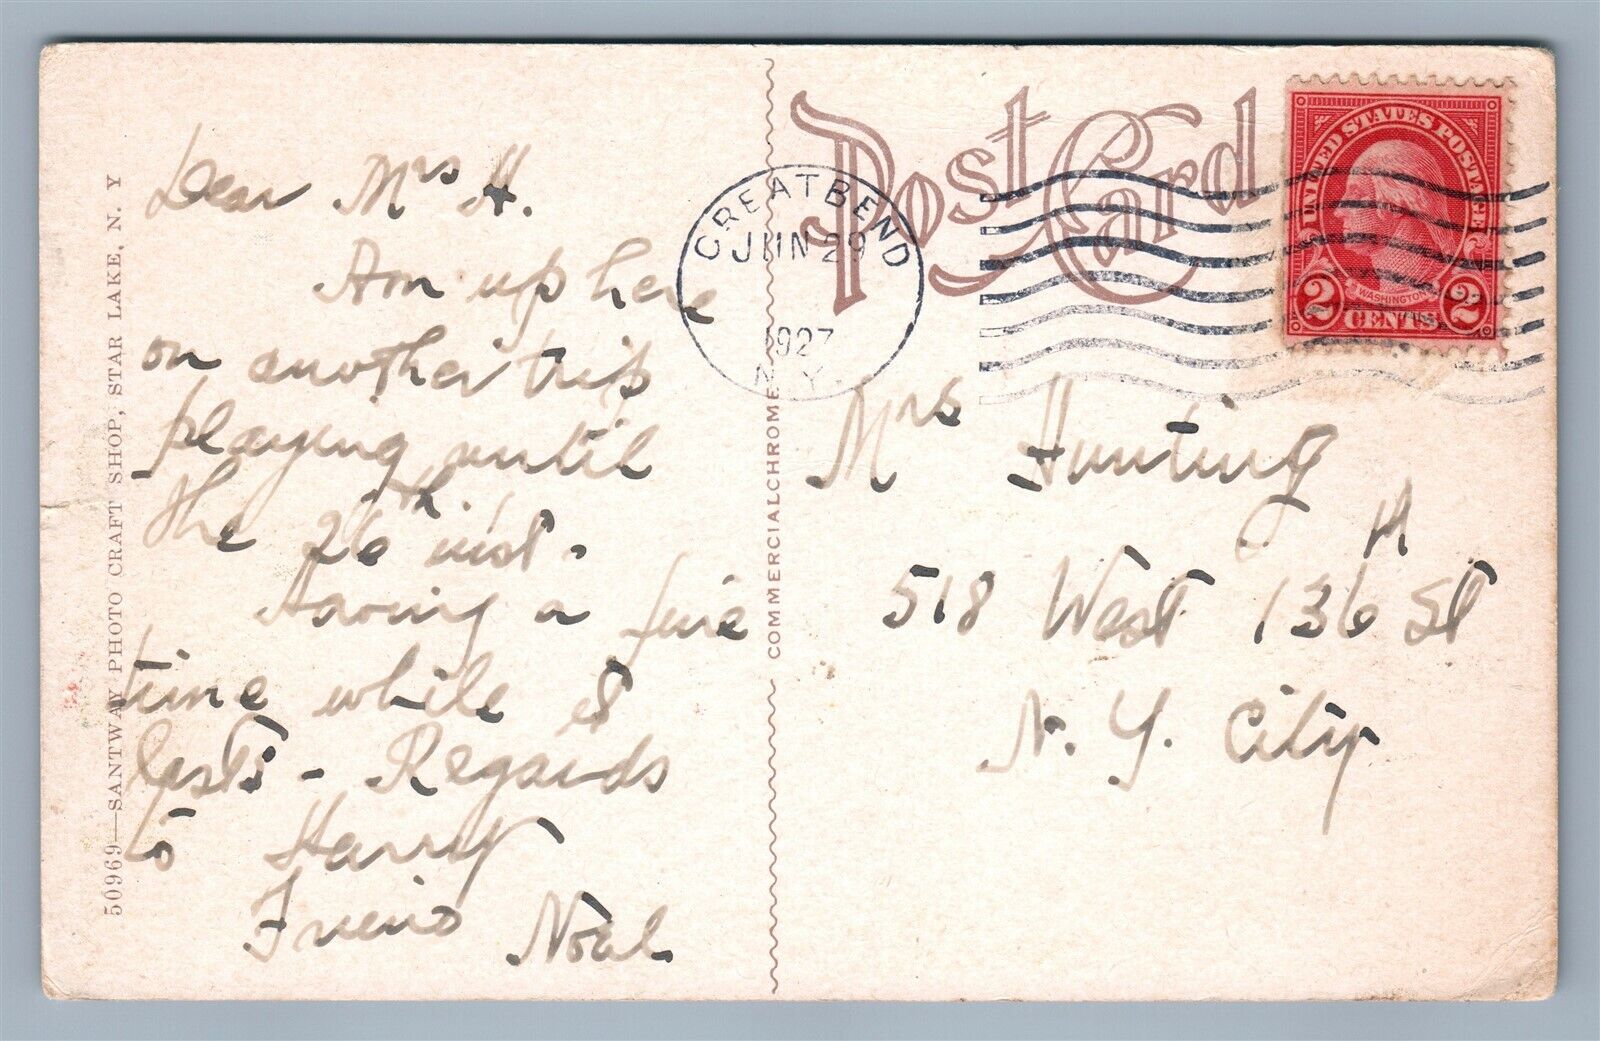 Dear Mrs H.
Am up here
on another trip
playing until
the 26th inst.
Having a fine
time while it
lasts - Regards
to Harry
Friend Noal
50969—SANTWAY PHOTO CRAFT SHOP, STAR LAKE, N. Y
COMMERCIALCHROME
Post Card
GREAT BEND
JUN 29
1927
N.Y.
UNITED STATES POSTAGE
WASHINGTON
2 CENTS 2
Mrs Hunting
518 West 136th St
N. Y. City